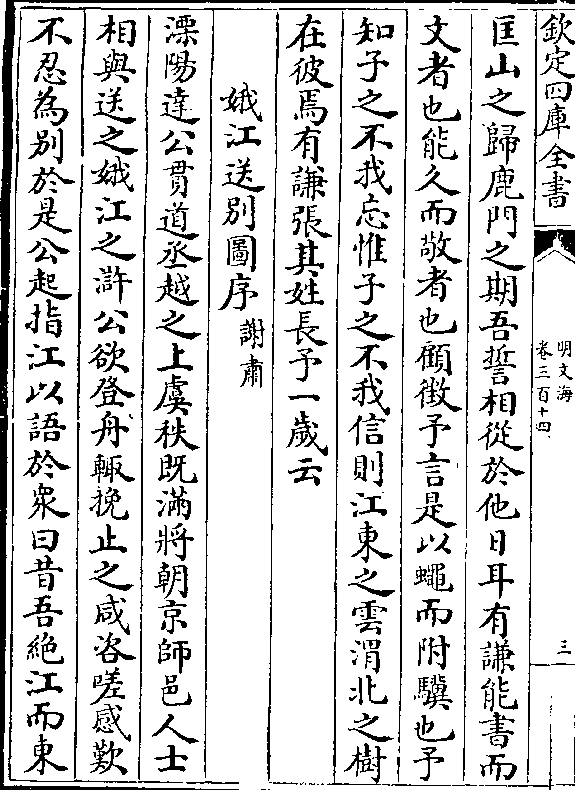 欽定四庫全書
明文海
卷三百十四
三
匡山之歸鹿門之期吾誓相從於他日耳有謙能書而
文者也能久而敬者也顧徵予言是以蠅而附驥也予
知子之不我忘惟子之不我信則江東之雲渭北之樹
在彼焉有謙張其姓長予一歲云
娥江送别圖序 謝肅
溧陽達公貫道丞越之上虞秩既滿將朝京師邑人士
相與送之娥江之滸公欲登舟輙挽止之咸咨嗟感歎
不忍為别於是公起指江以語於衆曰昔吾絶江而東